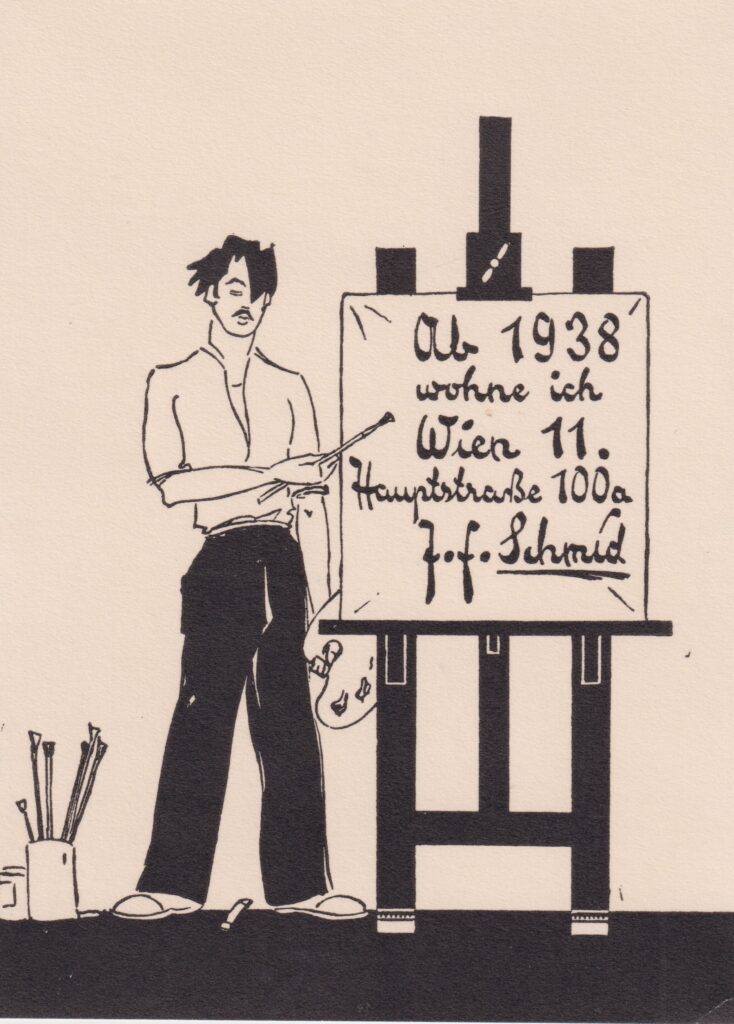 Ab 1938
wohne ich
Wien 11.
Hauptstraße 100a
J.F. Schmid